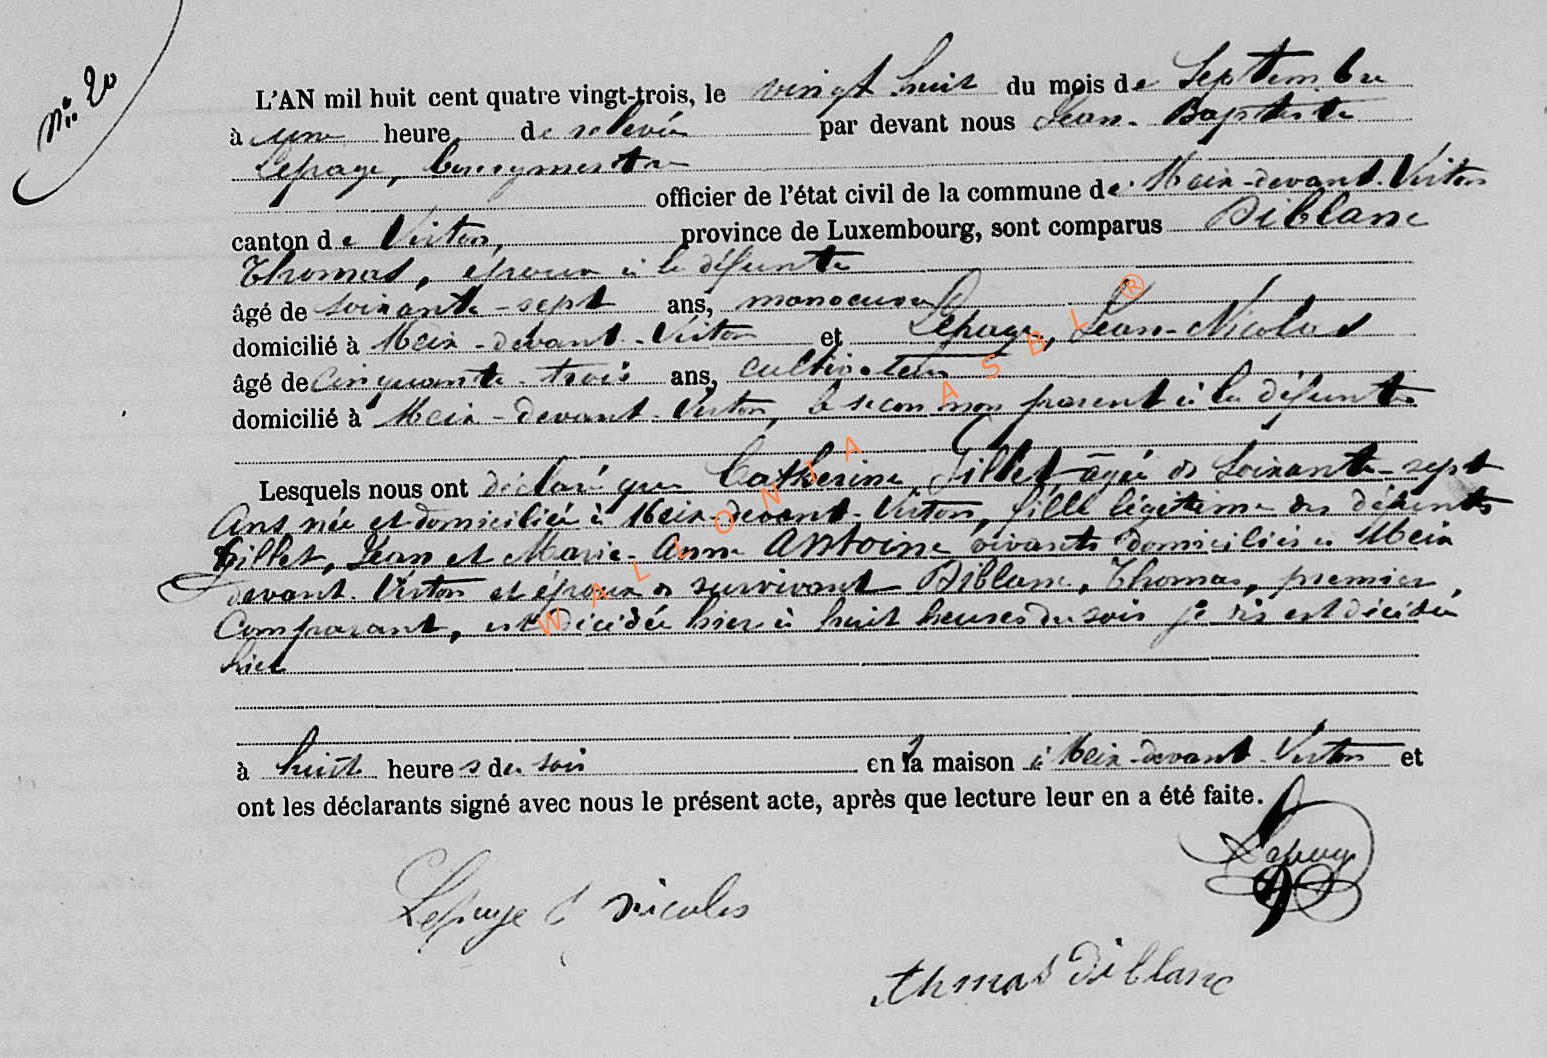 No. 20
L'AN mil huit cent quatre vingt-trois, le vingt huit du mois de Septembre
à une heure de relevée par devant nous Jean-Baptiste
Lepage, Bourgmestre
officier de l'état civil de la commune de Meix-devant-Virton
canton de Virton, province de Luxembourg, sont comparus Diblanc
Thomas, époux à la défunte
âgé de soixante-sept ans, manoeuvre
domicilié à Meix-devant-Virton et Lepage, Jean-Nicolas
âgé de cinquante-trois ans, cultivateur
domicilié à Meix-devant-Virton, le second non parent à la défunte
Lesquels nous ont déclaré que Catherine Gillet, âgée de Soixante-sept
Ans née et domiciliée à Meix-devant-Virton, fille légitime des défunts
Gillet, Jean et Marie-Anne Antoine vivants domiciliés à Meix
devant-Virton et épouse de survivant Diblanc, Thomas, premier
Comparant, est décédée hier à huit heures du soir je dis est décédée
hier
à huit heures du soir en la maison à Meix-devant-Virton et
ont les déclarants signé avec nous le présent acte, après que lecture leur en a été faite.
Lepage
Lepage J nicolas
thmas diblanc
WALLONIA ASBL ®